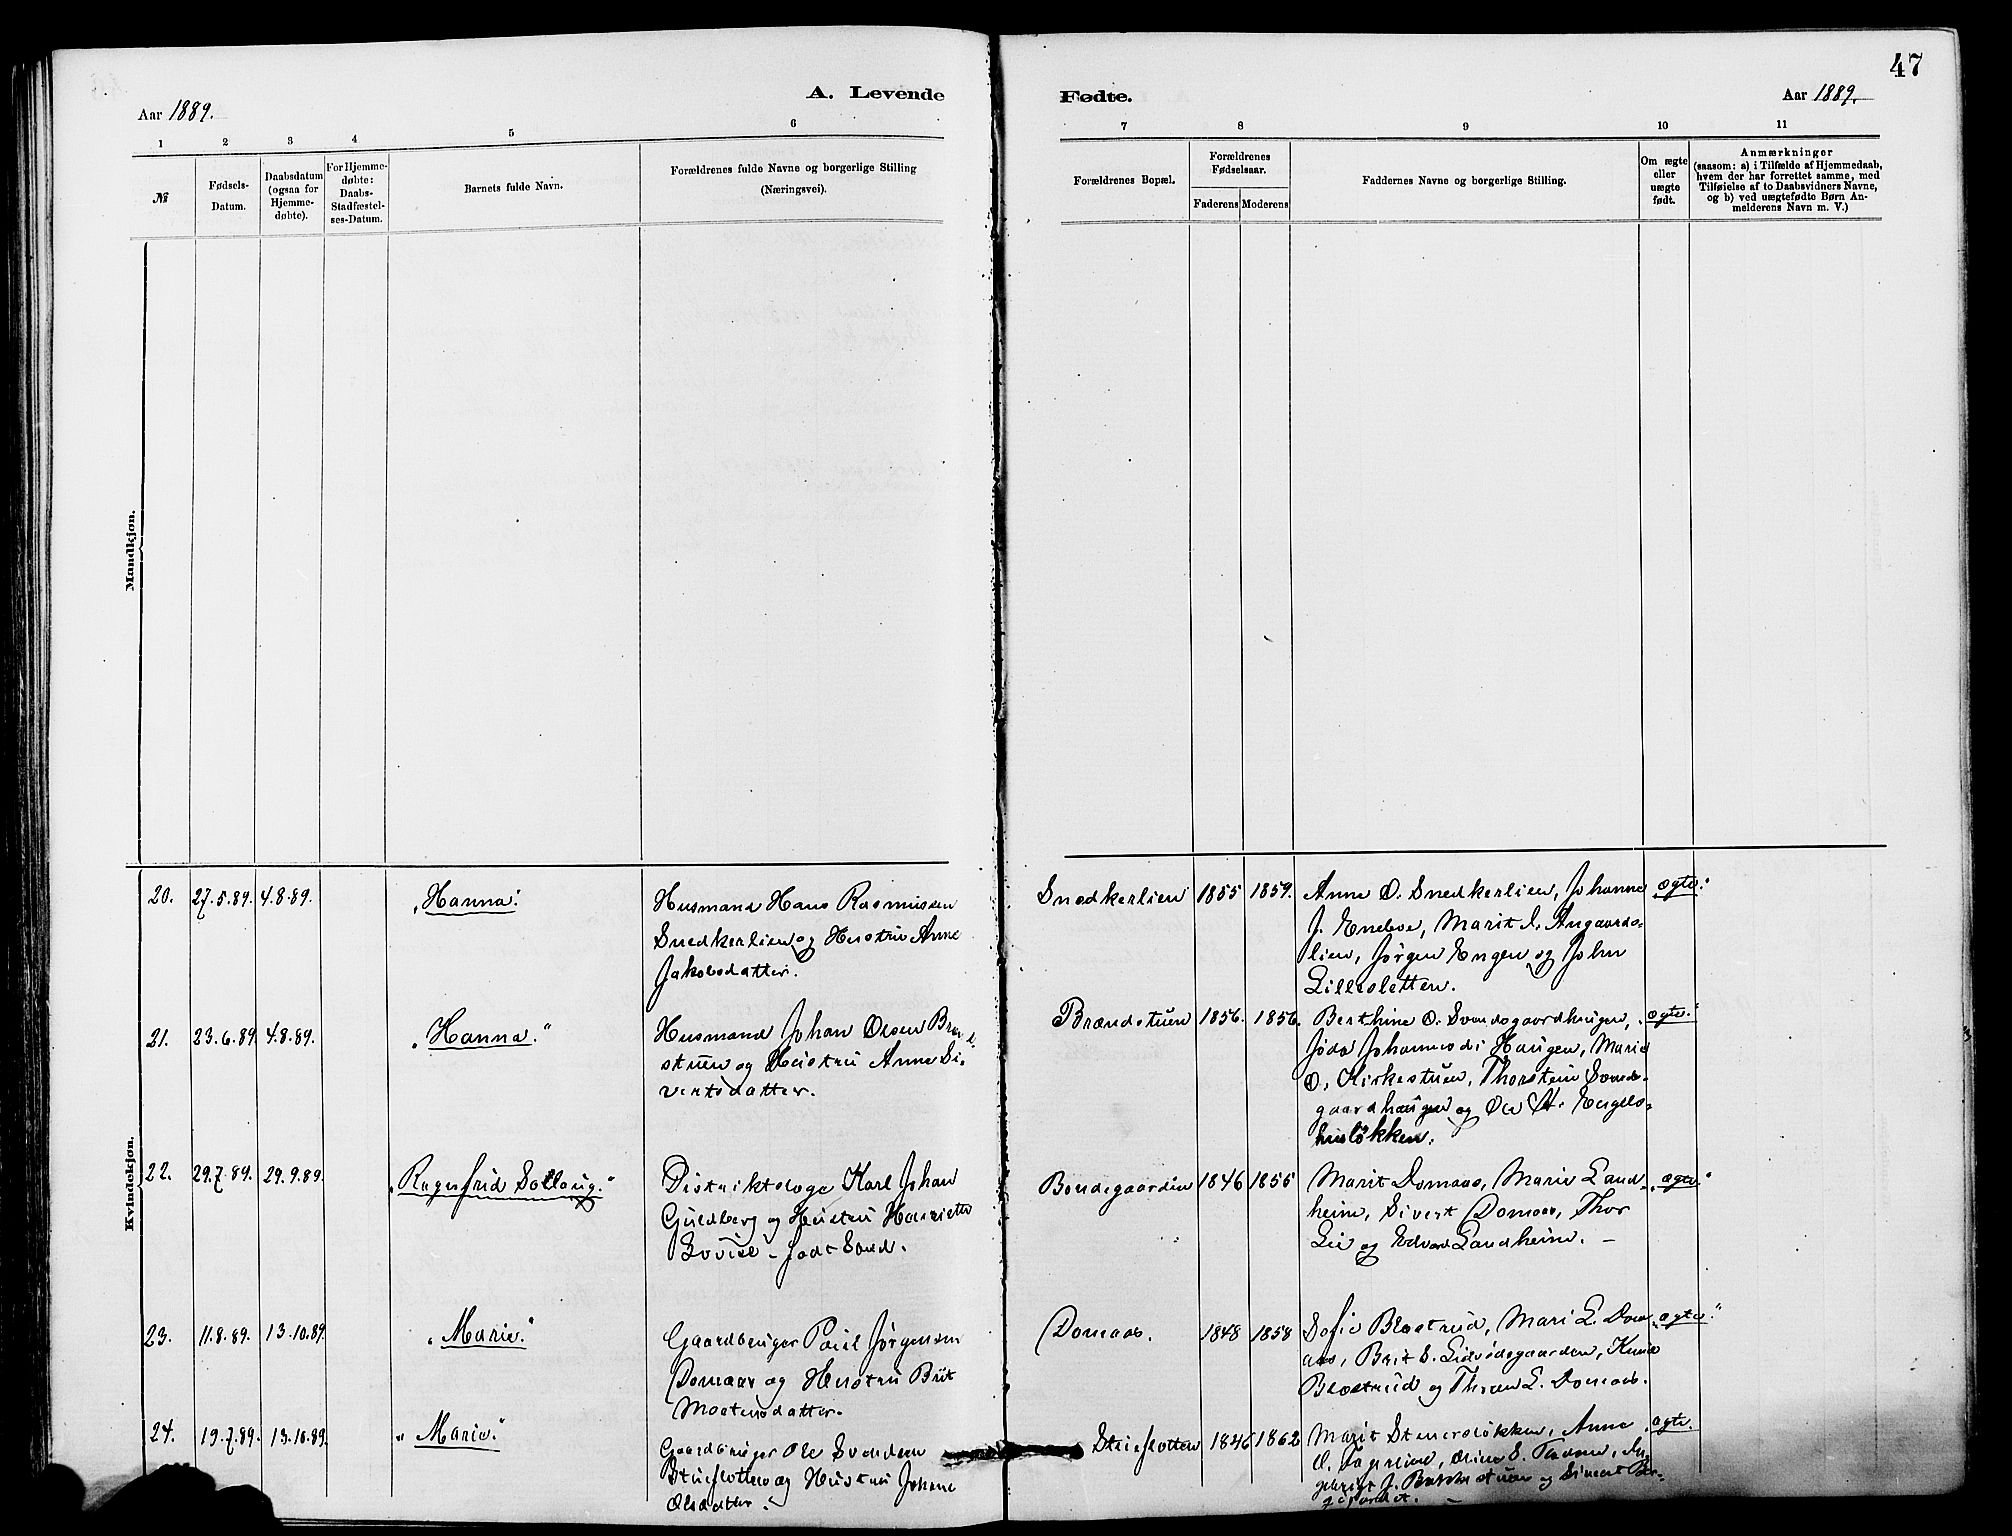 47
A. Levende
Fødte.
Aar 1889.
Aar 1889.
1 2 3 4 5 6
7 8 9 10 11
№
Fødsels-
Datum.
Daabsdatum
(ogsaa for
Hjemme-
døbte).
For Hjemme-
døbte:
Daabs-
Stadfæstel-
ses-Datum.
Barnets fulde Navn.
Forældrenes fulde Navne og borgerlige Stilling
(Næringsvei).
Forældrenes Bopæl.
Forældrenes
Fødselsaar.
Faderens Moderens
Faddernes Navne og borgerlige Stilling.
Om ægte
eller
uægte
født.
Anmærkninger
(saasom: a) i Tilfælde af Hjemmedaab,
hvem der har forrettet samme, med
Tilføielse af to Daabsvidners Navne,
og b) ved uægtefødte Børn An-
melderens Navn m. V.)
Mandkjøn.
Kvindekjøn.
20. 27.5.89. 4.8.89. "Hanna."
Husmand Hans Rasmussen
Snedkerlien og Hustru Anne
Jakobsdatter.
Snedkerlien 1855 1859.
Anne O. Snedkerlien, Johanne
J. Eneboe, Marit J. Angaards-
lien, Jørgen Engen og John
Lillesletten.
ægte."
21. 23.6.89. 4.8.89. "Hanna."
Husmand Johan Olsen Brænd-
stuen og Hustru Anne Si-
vertsdatter.
Brændstuen 1856. 1856.
Berthine O. Svendsgaardhaugen,
Johannes Haugen, Marie
O. Kirkestuen, Thorstein Svends-
gaardhaugen og Ole A. Engels-
husløkken.
"ægte."
22. 29.7.89. 29.9.89. "Ragnfrid Sollaug."
Distriktslæge Karl Johan
Guldberg og Hustru Henriette
Lovise - født Sand.
Bondegaarden 1846 1855
Marit Domaas, Marie Land-
heim, Sivert Domaas, Thor
Lie og Edvard Landheim. -
"ægte"
23. 11.8.89. 13.10.89. "Marie."
Gaardbruger Paul Jørgensen
Domaas og Hustru Brit
Mortensdatter.
Domaas. 1848 1858
Sofie Blæstrud, Mari L. Dom-
aas, Brit S. Lidvødegaarden, Knud
Blæstrud og Thron L. Domaas.
"ægte."
24. 19.7.89. 13.10.89. "Marie."
Gaardbruger Ole Svendsen
Stueflotten og Hustru Johane
Olsdatter.
Stueflotten 1846 1862
Marit Stenersløkken, Anne
ægte.